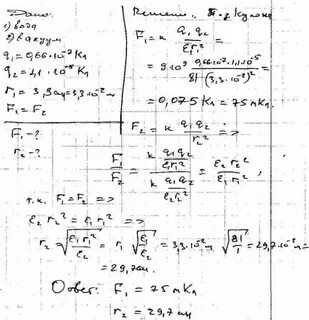 Дано:
1) вода
2) вакуум
q₁ = 0,66·10⁻⁷ Кл
q₂ = 1,1·10⁻⁵ Кл
r₁ = 3,3 см = 3,3·10⁻² м
F₁ = F₂
F₁ - ?
r₂ - ?
Решение: з-н Кулона
F₁ = k q₁ q₂ / ε₁ r₁² =
= 9·10⁹ 0,66·10⁻⁷·1,1·10⁻⁵ / 81·(3,3·10⁻²)² =
= 0,075 Кл = 75 мКл.
F₂ = k q₁ q₂ / r₂² =>
F₁ / F₂ = (k q₁ q₂ / ε₁ r₁²) / (k q₁ q₂ / ε₂ r₂²) = ε₂ r₂² / ε₁ r₁² ;
т.к. F₁ = F₂ =>
ε₂ r₂² = ε₁ r₁² =>
r₂ = √(ε₁ r₁² / ε₂) = r₁ √(ε₁ / ε₂) = 3,3·10⁻² √(81 / 1) = 29,7·10⁻² м =
= 29,7 см.
Ответ: F₁ = 75 мКл
r₂ = 29,7 см